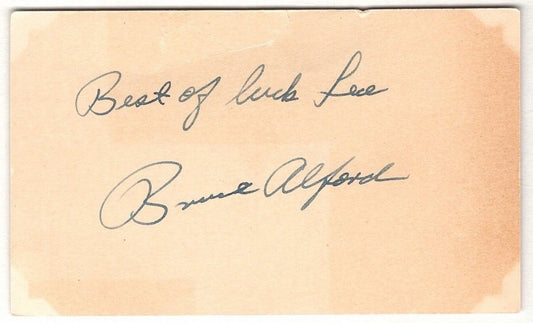 Best of luck Lee
Bruce Alford